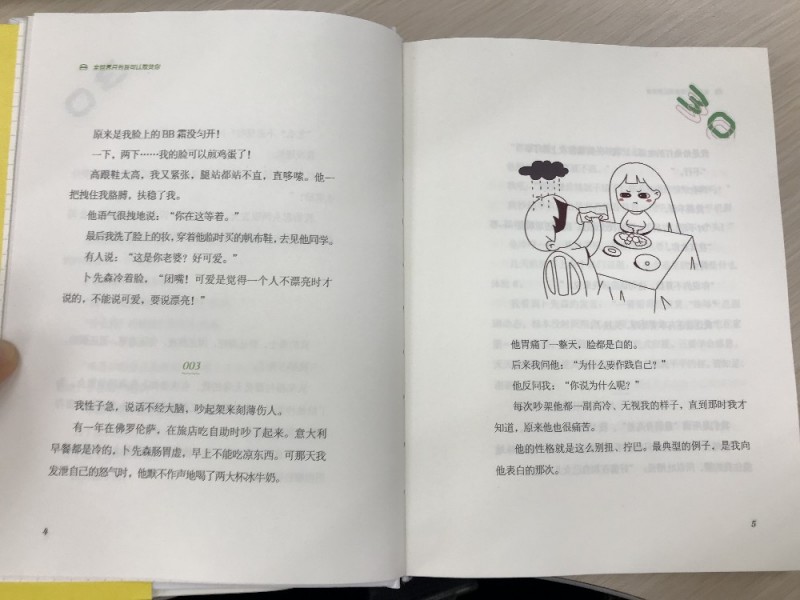 原来是我脸上的BB霜没匀开！
一下，两下……我的脸可以煎鸡蛋了！
高跟鞋太高，我又紧张，腿站都站不直，直哆嗦。他一
把拽住我胳膊，扶稳了我。
他语气很拽地说：“你在这等着。”
最后我洗了脸上的妆，穿着他临时买的帆布鞋，去见他同学。
有人说：“这是你老婆？好可爱。”
卜先森冷着脸，“闭嘴！可爱是觉得一个人不漂亮时才
说的，不能说可爱，要说漂亮！”
003
我性子急，说话不经大脑，吵起架来刻薄伤人。
有一年在佛罗伦萨，在旅店吃自助时吵了起来。意大利
早餐都是冷的，卜先森肠胃虚，早上不能吃凉东西。可那天我
发泄自己的怒气时，他默不作声地喝了两大杯冰牛奶。
4
WO
他胃痛了一整天，脸都是白的。
后来我问他：“为什么要作践自己？”
他反问我：“你说为什么呢？”
每次吵架他都一副高冷、无视我的样子，直到那时我才
知道，原来他也很痛苦。
他的性格就是这么别扭、拧巴。最典型的例子，是我向
他表白的那次。
5